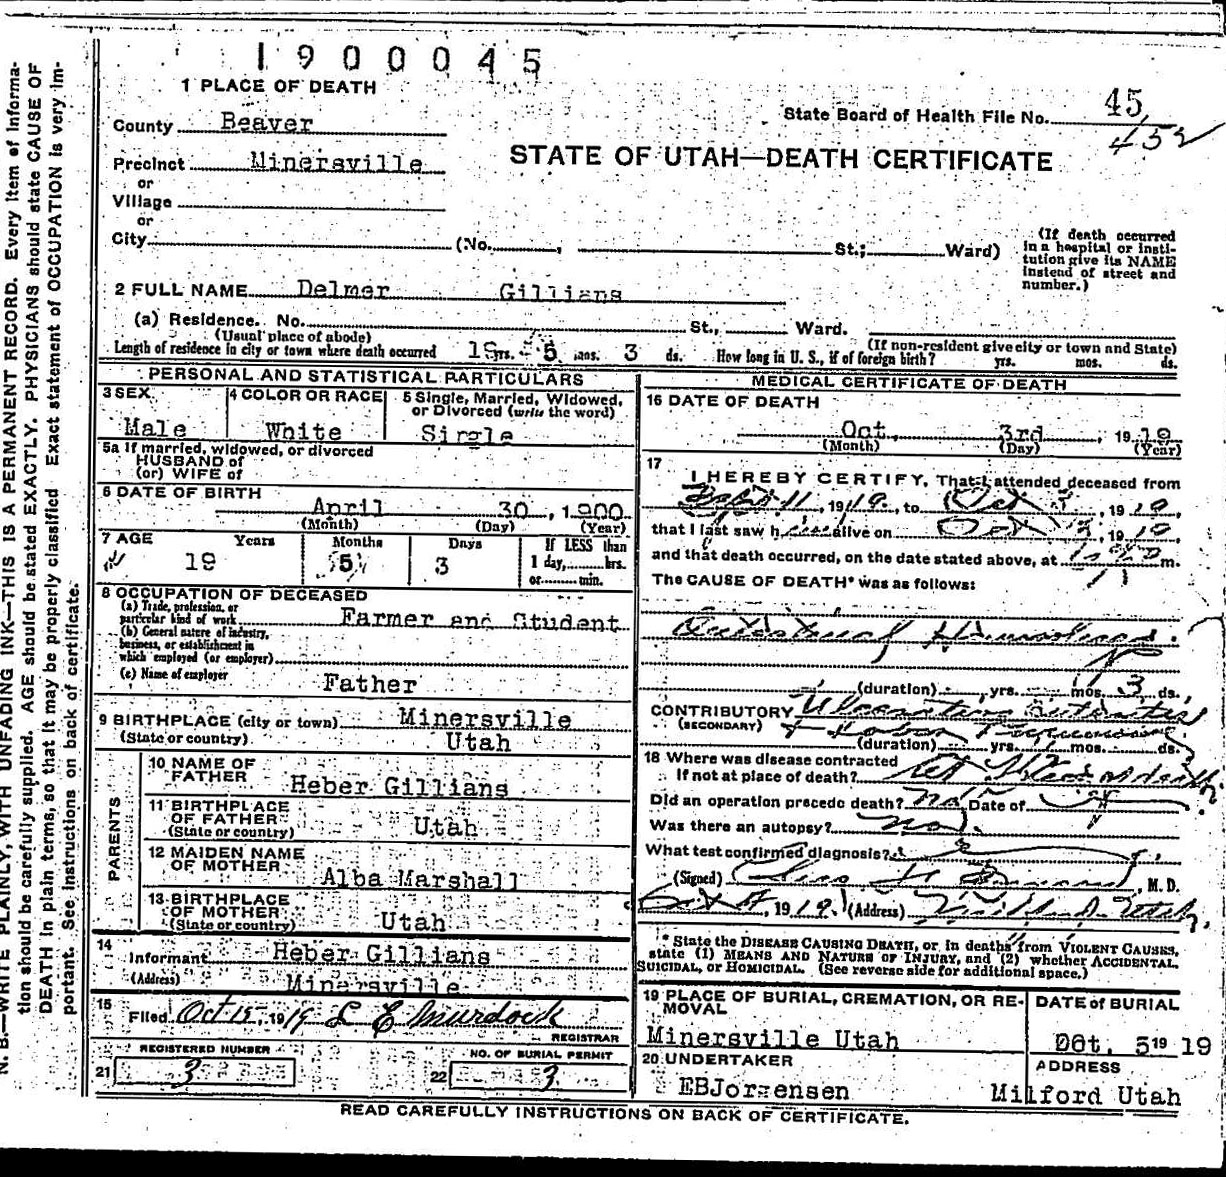 1900045
1 PLACE OF DEATH
State Board of Health File No. 45
452
County Beaver
STATE OF UTAH—DEATH CERTIFICATE
Precinct Minersville
or
Village
or
City (No. , St.; Ward)
(If death occurred in a hospital or institution give its NAME instead of street and number.)
2 FULL NAME Delmer Gillians
(a) Residence. No. St., Ward.
(Usual place of abode) (If non-resident give city or town and State)
Length of residence in city or town where death occurred 19 yrs. 5 mos. 3 ds. How long in U. S., if of foreign birth? yrs. mos. ds.
PERSONAL AND STATISTICAL PARTICULARS
3 SEX Male
4 COLOR OR RACE White
5 Single, Married, Widowed, or Divorced (write the word) Single
5a If married, widowed, or divorced
HUSBAND of
(or) WIFE of
6 DATE OF BIRTH
April 30, 1900
(Month) (Day) (Year)
7 AGE Years Months Days If LESS than
19 5 3 1 day, hrs.
or min.
8 OCCUPATION OF DECEASED
(a) Trade, profession, or particular kind of work Farmer and Student
(b) General nature of industry, business, or establishment in which employed (or employer)
(c) Name of employer Father
9 BIRTHPLACE (city or town) Minersville
(State or country) Utah
PARENTS
10 NAME OF FATHER Heber Gillians
11 BIRTHPLACE OF FATHER (State or country) Utah
12 MAIDEN NAME OF MOTHER Alba Marshall
13 BIRTHPLACE OF MOTHER (State or country) Utah
14 Informant Heber Gillians
(Address) Minersville
15 Filed Oct 15, 1919 L E Murdock
REGISTRAR
REGISTERED NUMBER
21 3
NO. OF BURIAL PERMIT
22 3
MEDICAL CERTIFICATE OF DEATH
16 DATE OF DEATH
Oct, 3rd, 1919
(Month) (Day) (Year)
17 I HEREBY CERTIFY, That I attended deceased from
11, 1919, to Oct 3, 1919
that I last saw h alive on Oct 3, 1919
and that death occurred, on the date stated above, at m.
The CAUSE OF DEATH* was as follows:
(duration) yrs. mos. 3 ds.
CONTRIBUTORY
(SECONDARY)
(duration) yrs. mos. ds.
18 Where was disease contracted
If not at place of death? at place of death
Did an operation precede death? no Date of
Was there an autopsy? no.
What test confirmed diagnosis?
(Signed) , M. D.
Oct , 1919 (Address) Utah
* State the DISEASE CAUSING DEATH, or, in deaths from VIOLENT CAUSES, state (1) MEANS AND NATURE OF INJURY, and (2) whether ACCIDENTAL, SUICIDAL, or HOMICIDAL. (See reverse side for additional space.)
19 PLACE OF BURIAL, CREMATION, OR REMOVAL Minersville Utah
DATE of BURIAL Oct. 5 19 19
20 UNDERTAKER EBJorgensen
ADDRESS Milford Utah
READ CAREFULLY INSTRUCTIONS ON BACK OF CERTIFICATE.
N. B.—WRITE PLAINLY, WITH UNFADING INK—THIS IS A PERMANENT RECORD. Every item of information should be carefully supplied. AGE should be stated EXACTLY. PHYSICIANS should state CAUSE OF DEATH in plain terms, so that it may be properly classified. Exact statement of OCCUPATION is very important. See instructions on back of certificate.